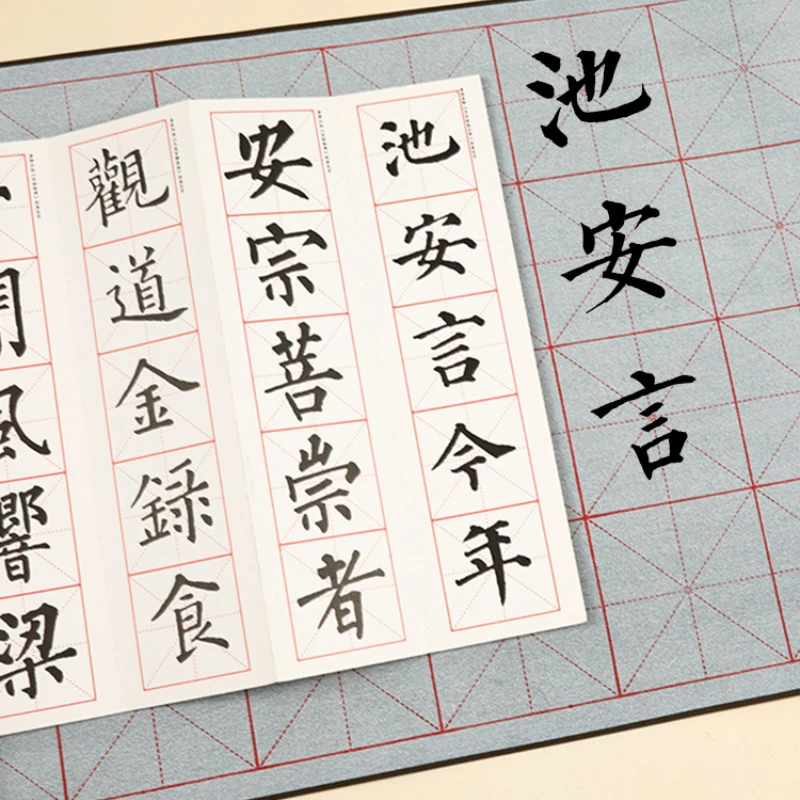 池安言
池安言今年
安宗菩崇者
觀道金録食
風響梁